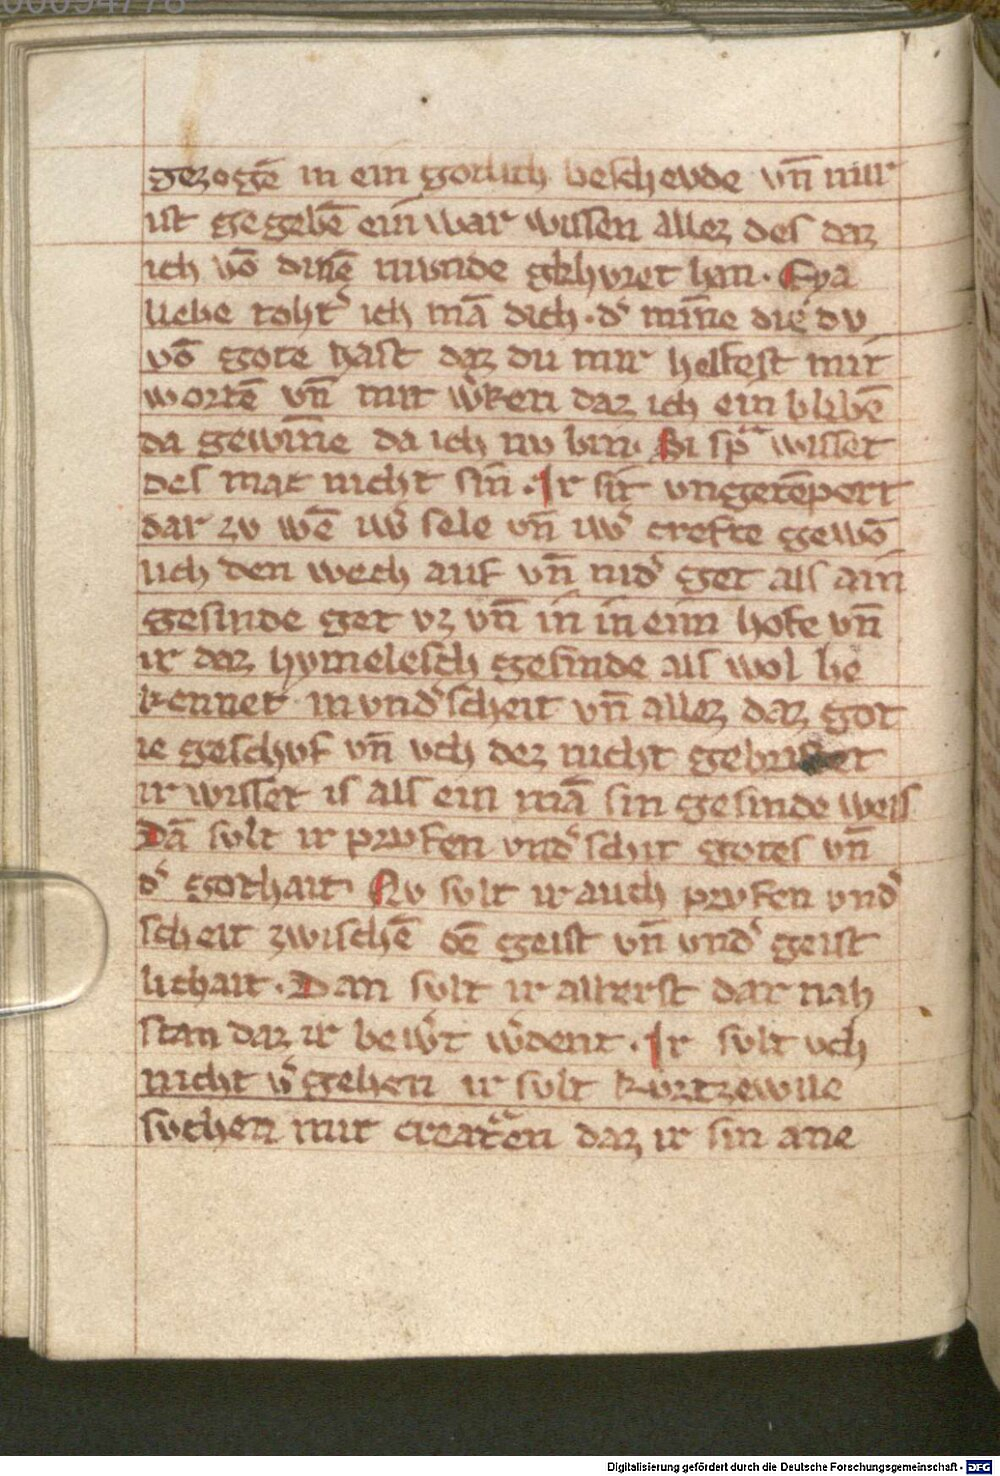 00094778
gezogē in ein gotlich bescheude vn̄ mir
ist gegebē ein war wissen allez des daz
ich vō dinē munde gehvret han. Eya
liebe toht͛ ich mā dich. d͛ mīne die dv
vō gote hast daz du mir helfest mit
wortē vn̄ mit w͛ken daz ich ein blibē
da gewīne da ich nv bin. Si spᵃ wisset
des mac nicht sin̄. Ir sit vngetēpert
dar zv wē iw͛ sele vn̄ iw͛ crefte gewō
lich den wech auf vn̄ nid͛ get als ain
gesinde get vz vn̄ in in eim hofe vn̄
ir daz hymelesch gesinde als wol be
kennet in vnd͛scheit vn̄ allez daz got
ie geschvf vn̄ vch dez nicht gebristet
ir wisset is als ein mā sin gesinde weis
Dā svlt ir prvfen vnd͛schit gotes vn̄
d͛ gothait Nv svlt ir auch prvfen vnd͛
scheit zwischē dē geist vn̄ vnd͛ geist
lichait. Dan svlt ir allerst dar nah
stan daz ir bew͛t w͛dent. Ir svlt vch
nicht v͛gehen ir svlt kvrtzewile
svchen mit creatᵛen daz ir sin ane
Digitalisierung gefördert durch die Deutsche Forschungsgemeinschaft - DFG